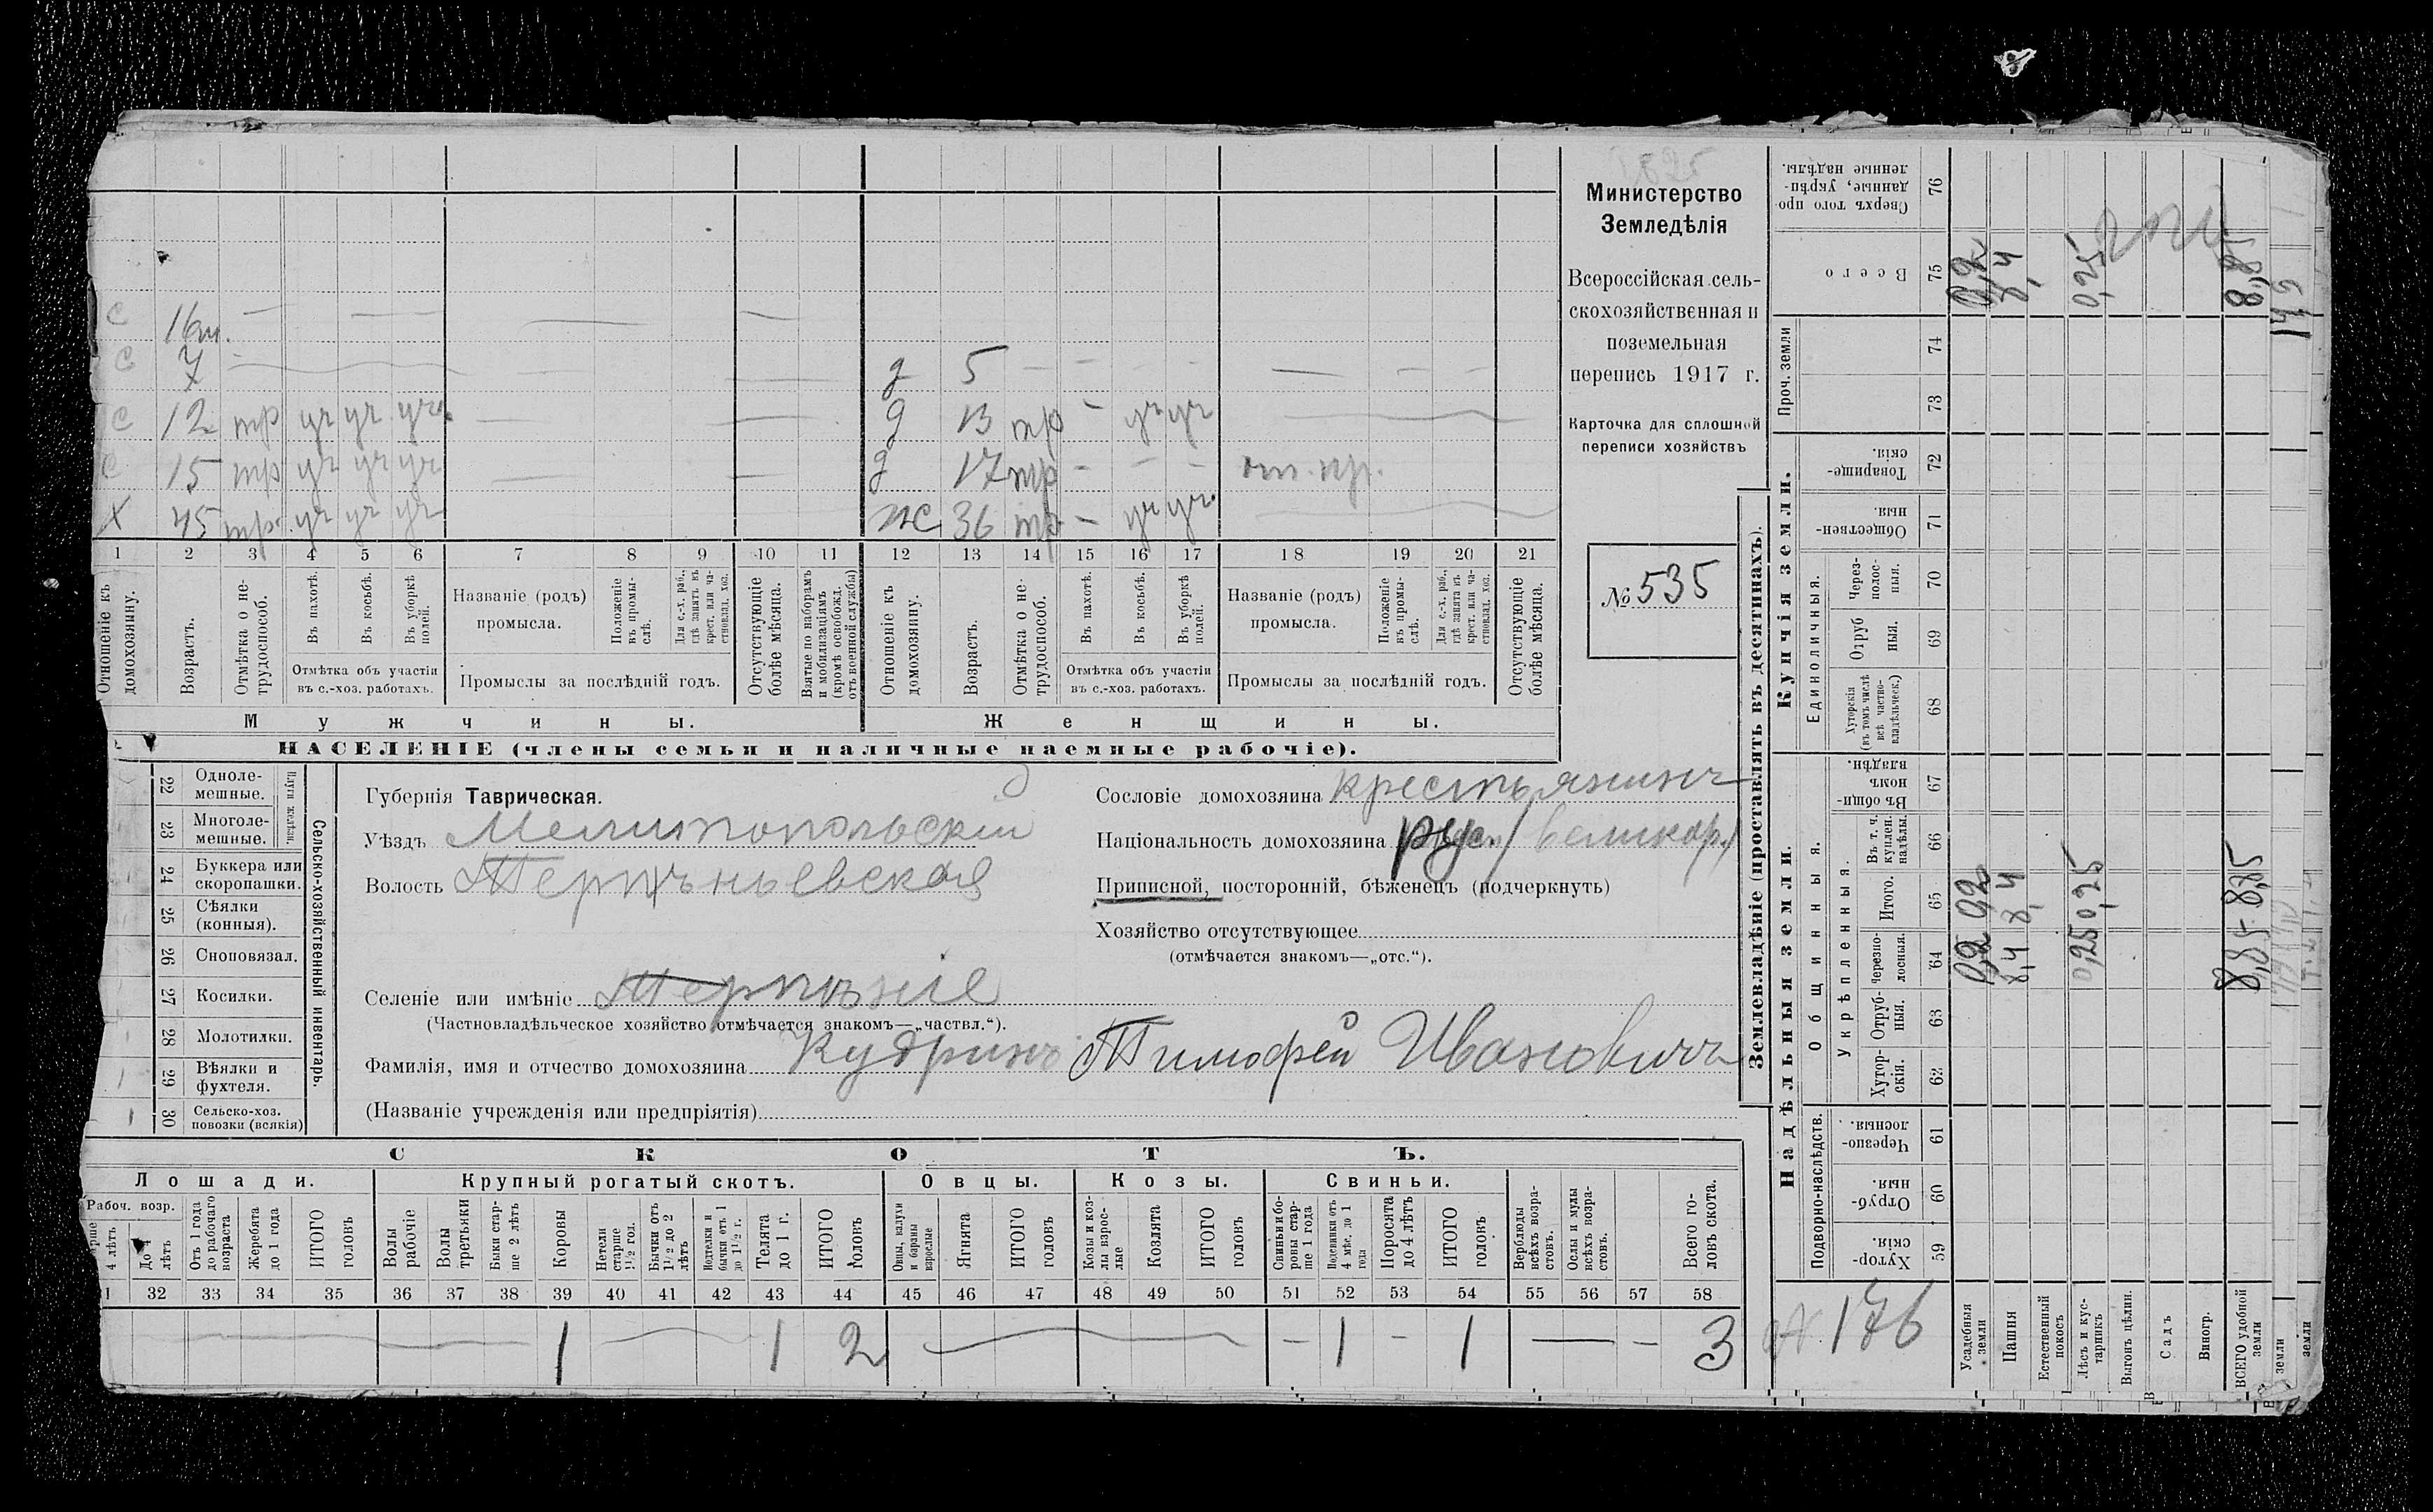 Министерство
Земледѣлія
Всероссійская сель-
скохозяйственная и
поземельная
перепись 1917 г.
Карточка для сплошной
переписи хозяйствъ
№ 535
с 16м.
с 7
д 5
с 12 тр уч уч уч
д 13 тр - уч уч
с 15 тр уч уч уч
д 17 тр - - -
х 45 тр. уч уч уч
ж 36 тр - уч уч
1 2 3 4 5 6 7 8 9 10 11 12 13 14 15 16 17 18 19 20 21
Отношеніе къ домохозяину.
Возрастъ.
Отмѣтка о не-
трудоспособ.
Въ пахотѣ.
Въ косьбѣ.
Въ уборкѣ полей.
Отмѣтка объ участіи
въ с.-хоз. работахъ.
Названіе (родъ)
промысла.
Положеніе въ промы-
слѣ.
Для с.-х. раб., гдѣ занятъ въ крест. или ча-
стновлад. хоз.
Промыслы за послѣдній годъ.
Отсутствующіе болѣе мѣсяца.
Взятые по наборамъ и мобилизаціямъ (кромѣ освобожд. отъ военной службы)
Отношеніе къ домохозяину.
Возрастъ.
Отмѣтка о не-
трудоспособ.
Въ пахотѣ.
Въ косьбѣ.
Въ уборкѣ полей.
Отмѣтка объ участіи
въ с.-хоз. работахъ.
Названіе (родъ)
промысла.
Положеніе въ промы-
слѣ.
Для с.-х. раб., гдѣ занята въ крест. или ча-
стновлад. хоз.
Промыслы за послѣдній годъ.
Отсутствующіе болѣе мѣсяца.
Мужчины.
Женщины.
НАСЕЛЕНІЕ (члены семьи и наличные наемные рабочіе).
22 Одноле-
мешные.
23 Многоле-
мешные.
24 Буккера или
скоропашки.
25 Сѣялки
(конныя).
26 Сноповязал.
27 Косилки.
28 Молотилки.
29 Вѣялки и
фухтеля.
30 Сельско-хоз.
повозки (всякія)
Сельско-хозяйственный инвентарь.
Губернія Таврическая.
Уѣздъ Мелитопольскій
Волость Терпѣньевская
Селеніе или имѣніе Терпѣніе
(Частновладѣльческое хозяйство отмѣчается знакомъ—„частвл.“).
Фамилія, имя и отчество домохозяина Кудринъ Тимофей Ивановичъ
(Названіе учрежденія или предпріятія)
Сословіе домохозяина крестьянинъ
Національность домохозяина рус. /великор./
Приписной, посторонній, бѣженецъ (подчеркнуть)
Хозяйство отсутствующее
(отмѣчается знакомъ—„отс.“).
СКОТЪ.
Лошади.
Крупный рогатый скотъ.
Овцы.
Козы.
Свиньи.
Рабоч. возр.
4 лѣтъ
До 4 лѣтъ
Отъ 1 года до рабочаго возраста
Жеребята до 1 года
ИТОГО головъ
Волы рабочіе
Волы третьяки
Быки стар-
ше 2 лѣтъ
Коровы
Нетели старше 1 1/2 год.
Бычки отъ 1 1/2 до 2 лѣтъ
Телята до 1 г.
ИТОГО головъ
Овцы, валухи и бараны взрослые
Ягнята
ИТОГО головъ
Козы и коз-
лы взрос-
лые
Козлята
ИТОГО головъ
Свиньи и бо-
ровы стар-
ше 1 года
Подсвинки отъ 4 мѣс. до 1 года
Поросята до 4 лѣтъ
ИТОГО головъ
Верблюды всѣхъ возра-
стовъ.
Ослы и мулы всѣхъ возра-
стовъ.
Всего го-
ловъ скота.
32 33 34 35 36 37 38 39 40 41 42 43 44 45 46 47 48 49 50 51 52 53 54 55 56 57 58
1 1 2 1 1 3
Землевладѣніе (проставлять въ десятинахъ).
Надѣльныя земли.
Купчія земли.
Проч. земли
Подворно-наслѣдств.
Общинныя.
Укрѣпленныя.
Единоличныя.
Сверхъ того про-
данные, укрѣп-
ленные надѣлы. 76
Всего 75
74
73
Товарище-
скія. 72
Обществен-
ныя. 71
Через-
полос-
ныя. 70
Отруб
ныя. 69
Хуторскія (въ томъ числѣ всѣ частно-
владѣльческ.) 68
Въ общин-
номъ владѣн. 67
Въ т. ч. куплен. надѣлы. 66
Итого. 65
Черезпо-
лосныя. 64
Отруб-
ныя. 63
Хутор-
скія. 62
Черезпо-
лосныя. 61
Отруб-
ныя. 60
Хутор-
скія. 59
Усадебныя земли
Пашня
Естественный покосъ
Лѣсъ и кус-
тарникъ
Выгонъ цѣлин.
Садъ
Виногр.
ВСЕГО удобной земли
0,2 0,2 0,2
8,4 8,4 8,4
0,25 0,25 0,25
8,85 8,85 8,85
176